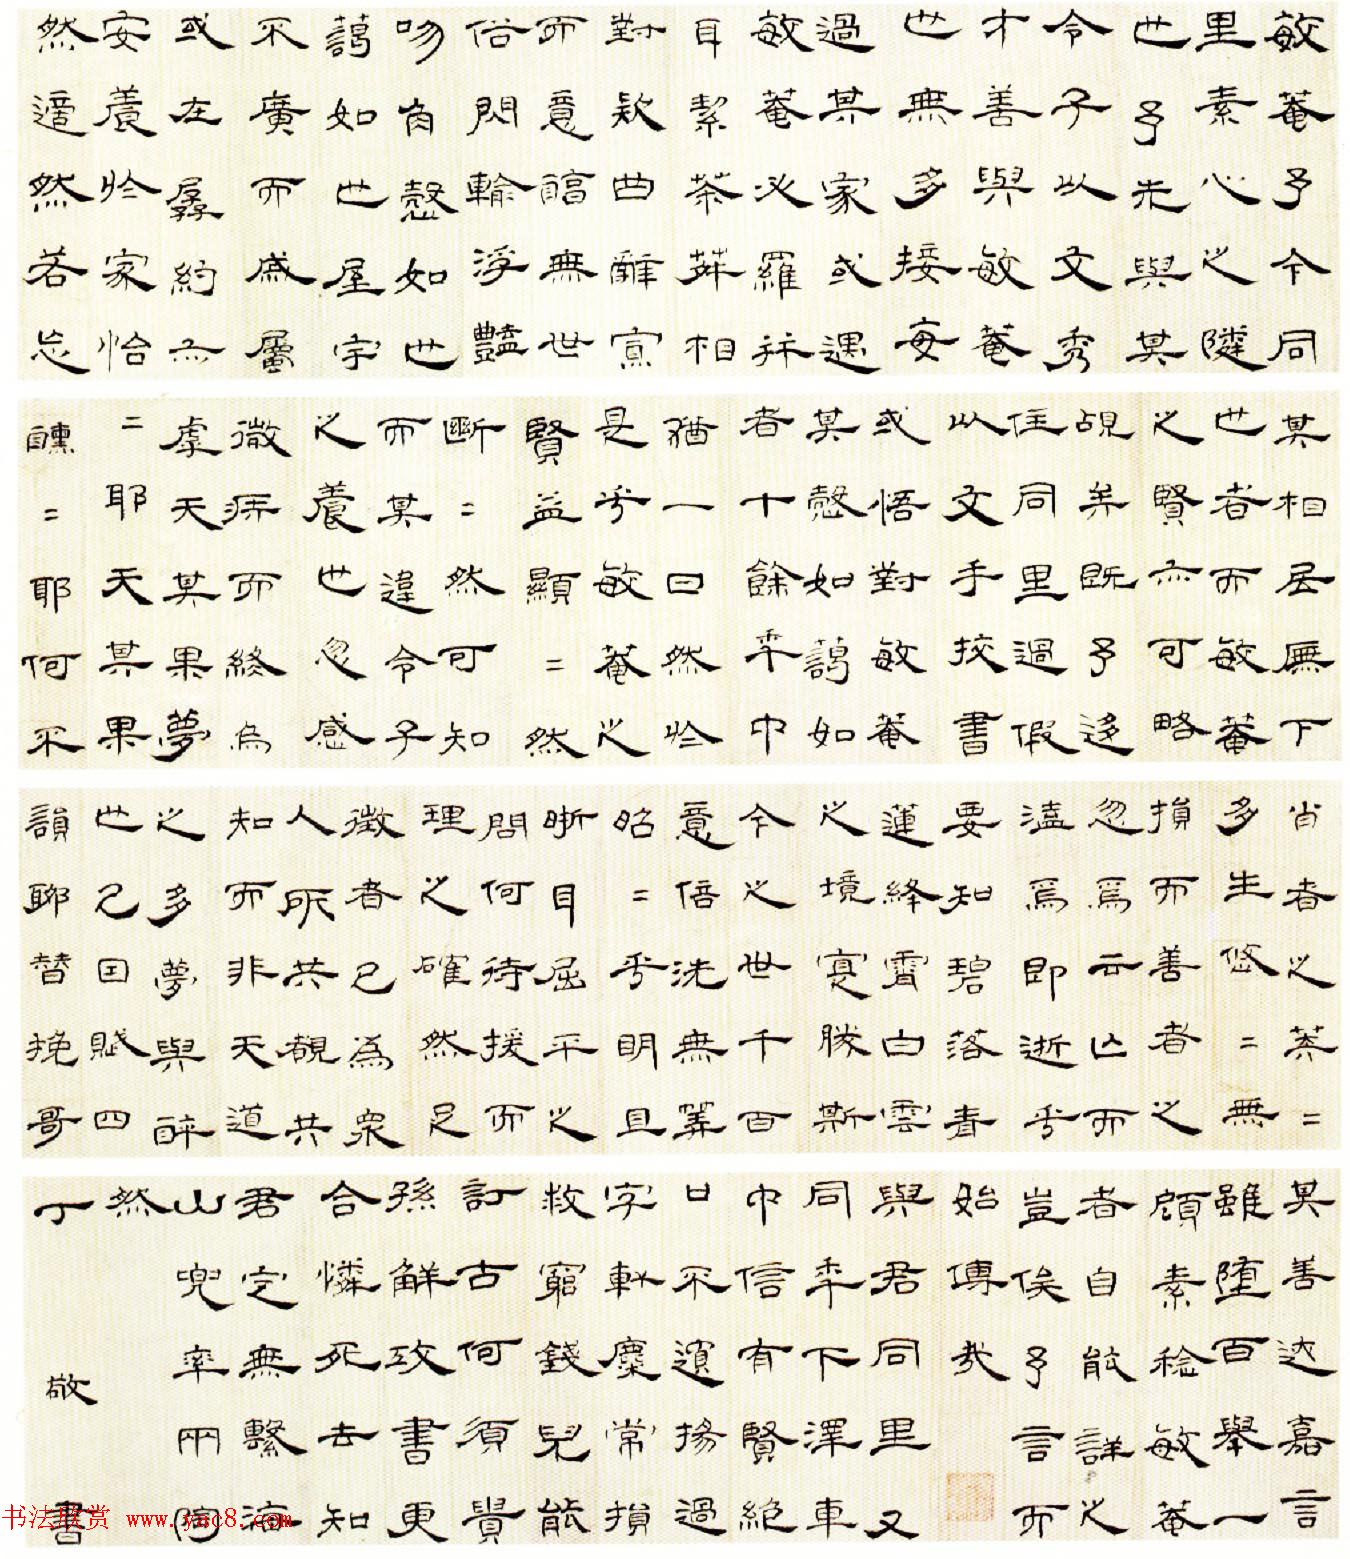 敏菴予今同
里素心之隣
世予未與其
令子以文秀
才善與敏菴
世無多接每
過某家或遇
敏菴必羅拜
耳絜茶荈相
對款曲辭寡
而意酷無世
俗閃輸浮豔
吻肏愨如世
謁如世屋宇
不廣而處屬
或在孱約亦
安養於家怡
然適然若忘
其相居廡下
世者而敏菴
之賢亦可略
覘矣既予迻
住同里過假
以文手挍書
或悟對敏菴
某愨如謁如
者十餘年中
猶一日然於
是乎敏菴之
賢益顯=然
斷=然可知
而某違令子
之養也忽感
微疾而終烏
虖天某果夢
=耶天某果
醺=耶何不
肖者之棼=
多生悠=無
損而善者之
忽焉云亡而
溘焉即逝乎
要知碧落青
蓮絳霄白雲
之境寔勝斯
今之世千百
意倍洗無筭
昭=乎明且
晰目屈平之
問何待援而
理之確然足
徵者已為眾
人所共覩共
知而非天道
之多夢與醉
也已因賦四
韻聊替挽哥
其善迖嘉言
雖墮百舉一
頋素稔敏菴
者自能詳之
豈俟予言而
始傳哉
與君同里又
同年下澤車
中信有賢絕
口不濱揚過
字軒麋常損
救窮錢兒能
訂古何須貴
孫解攻書更
合憐死去知
君定無繫海
山兜率兩同
然
丁敬書
书法欣赏 www.yac8.com